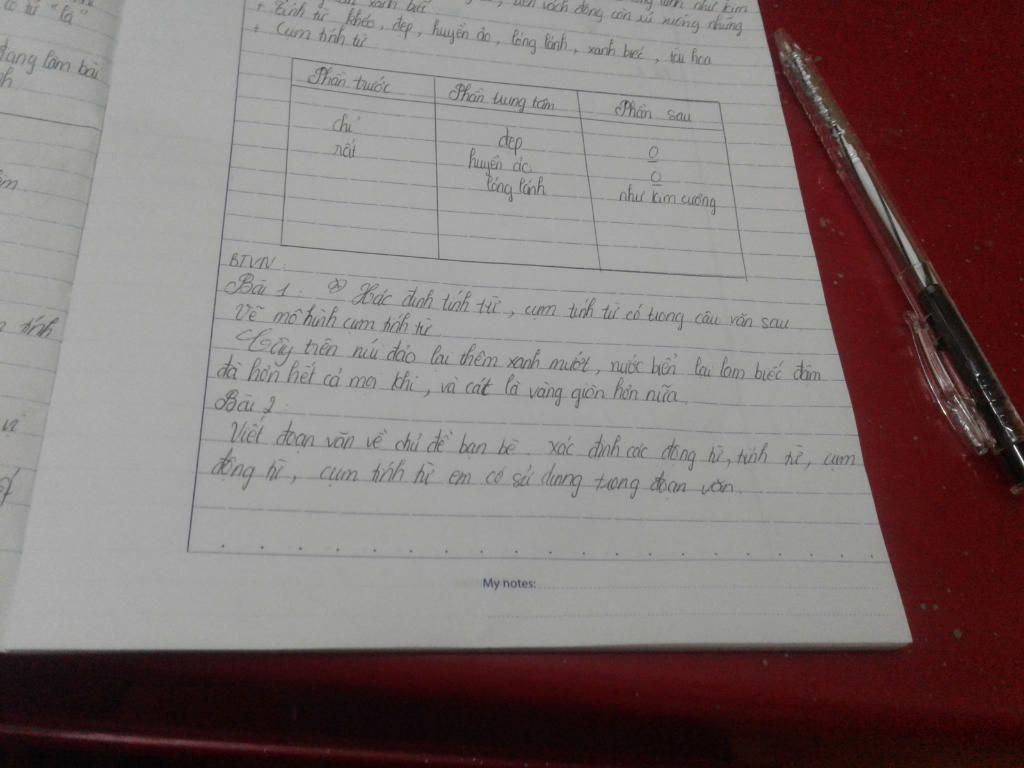 có từ "là"
đang làm bài
như kim
xanh biếc
vách đông còn sà xuống những
+ Tính từ khéo, đẹp, huyền ảo, lóng lánh, xanh biếc, tài hoa
+ Cụm tính từ
Phần trước Phần trung tâm Phần sau
chỉ đẹp 0
rất huyền ảo 0
lóng lánh như kim cương
tính
vị
BTVN:
Bài 1. Xác định tính từ, cụm tính từ có trong câu văn sau.
Vẽ mô hình cụm tính từ
Cây trên núi đảo lại thêm xanh mướt, nước biển lại lam biếc đậm
đà hơn hết cả mọi khi, và cát là vàng giòn hơn nữa.
Bài 2.
Viết đoạn văn về chủ đề bạn bè. xác định các động từ, tính từ, cụm
động từ, cụm tính từ em có sử dụng trong đoạn văn.
My notes: